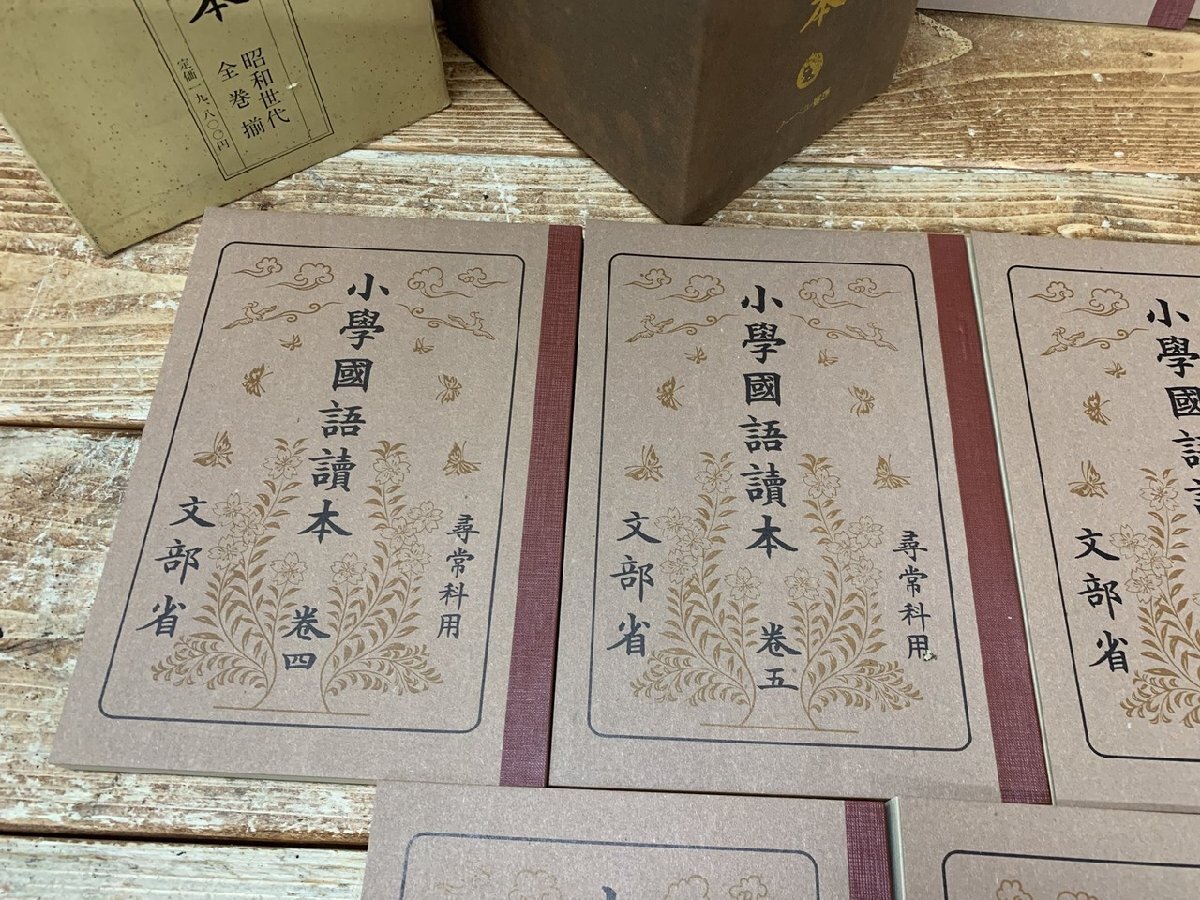 本
昭和世代
全巻揃
定価一九、八〇〇円
本
小學國語讀本
尋常科用
卷四
文部省
小學國語讀本
尋常科用
卷五
文部省
小學國語
文部省
小